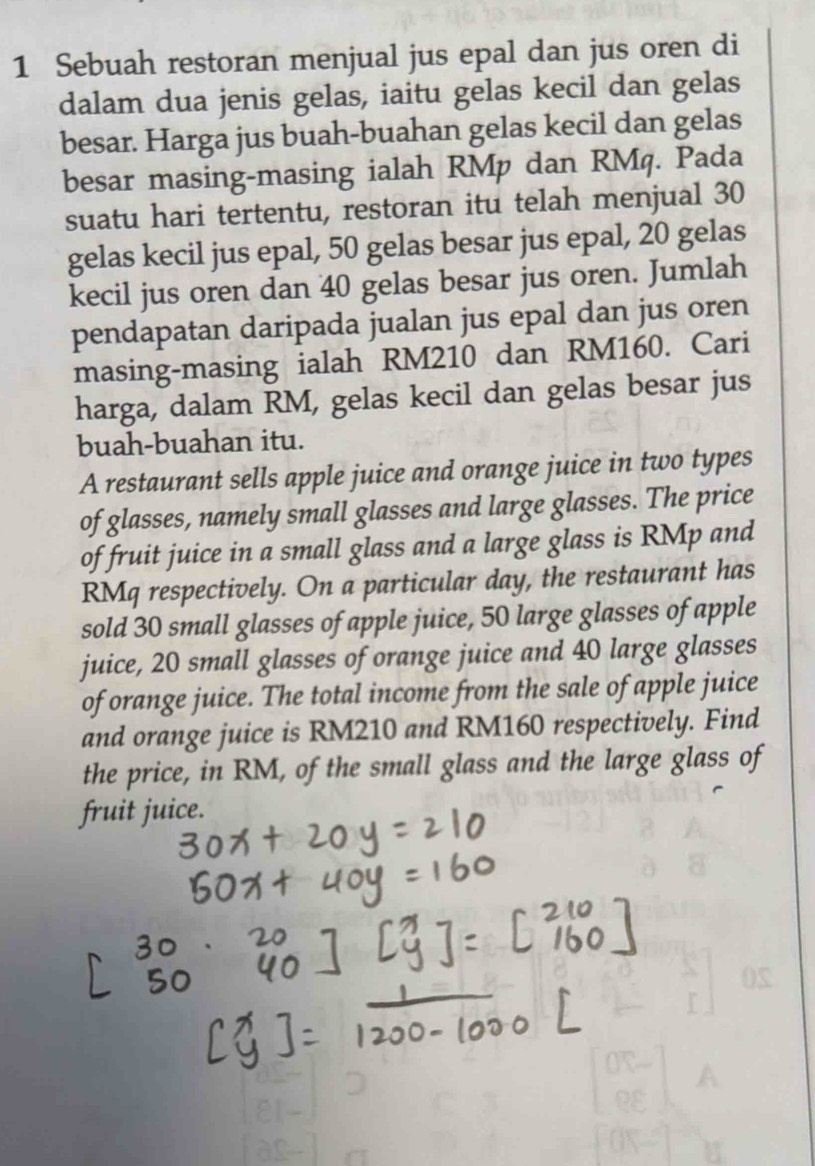 1 Sebuah restoran menjual jus epal dan jus oren di
dalam dua jenis gelas, iaitu gelas kecil dan gelas
besar. Harga jus buah-buahan gelas kecil dan gelas
besar masing-masing ialah RMp dan RMq. Pada
suatu hari tertentu, restoran itu telah menjual 30
gelas kecil jus epal, 50 gelas besar jus epal, 20 gelas
kecil jus oren dan 40 gelas besar jus oren. Jumlah
pendapatan daripada jualan jus epal dan jus oren
masing-masing ialah RM210 dan RM160. Cari
harga, dalam RM, gelas kecil dan gelas besar jus
buah-buahan itu.
A restaurant sells apple juice and orange juice in two types
of glasses, namely small glasses and large glasses. The price
of fruit juice in a small glass and a large glass is RMp and
RMq respectively. On a particular day, the restaurant has
sold 30 small glasses of apple juice, 50 large glasses of apple
juice, 20 small glasses of orange juice and 40 large glasses
of orange juice. The total income from the sale of apple juice
and orange juice is RM210 and RM160 respectively. Find
the price, in RM, of the small glass and the large glass of
fruit juice.
30x + 20y = 210
50x + 40y = 160
[30 20
50 40] [x
y] = [210
160]
[x
y] = 1
1200 - 1000 [